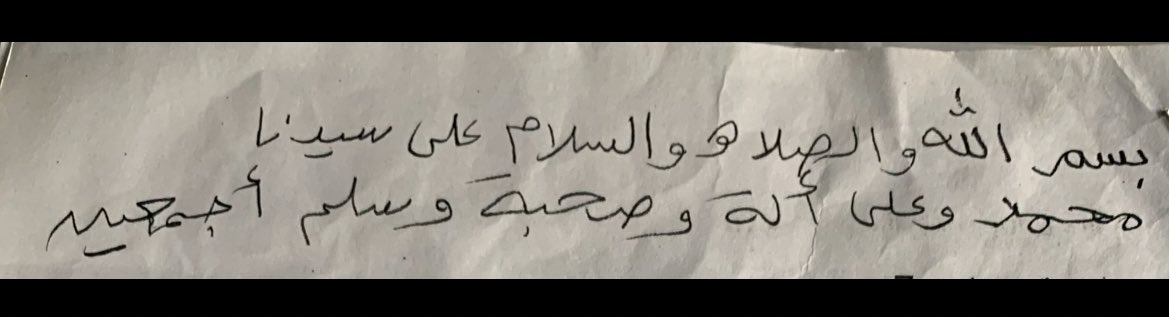 بسم الله والصلاه والسلام على سيدنا
محمد وعلى ألة وصحبة وسلم أجمعين